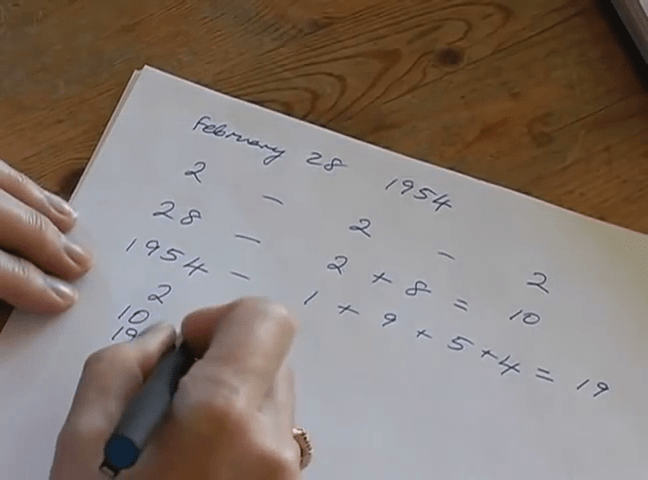 February 28 1954
2 - 2 - 2
28 - 2 + 8 = 10
1954 - 1 + 9 + 5 + 4 = 19
2
10
19